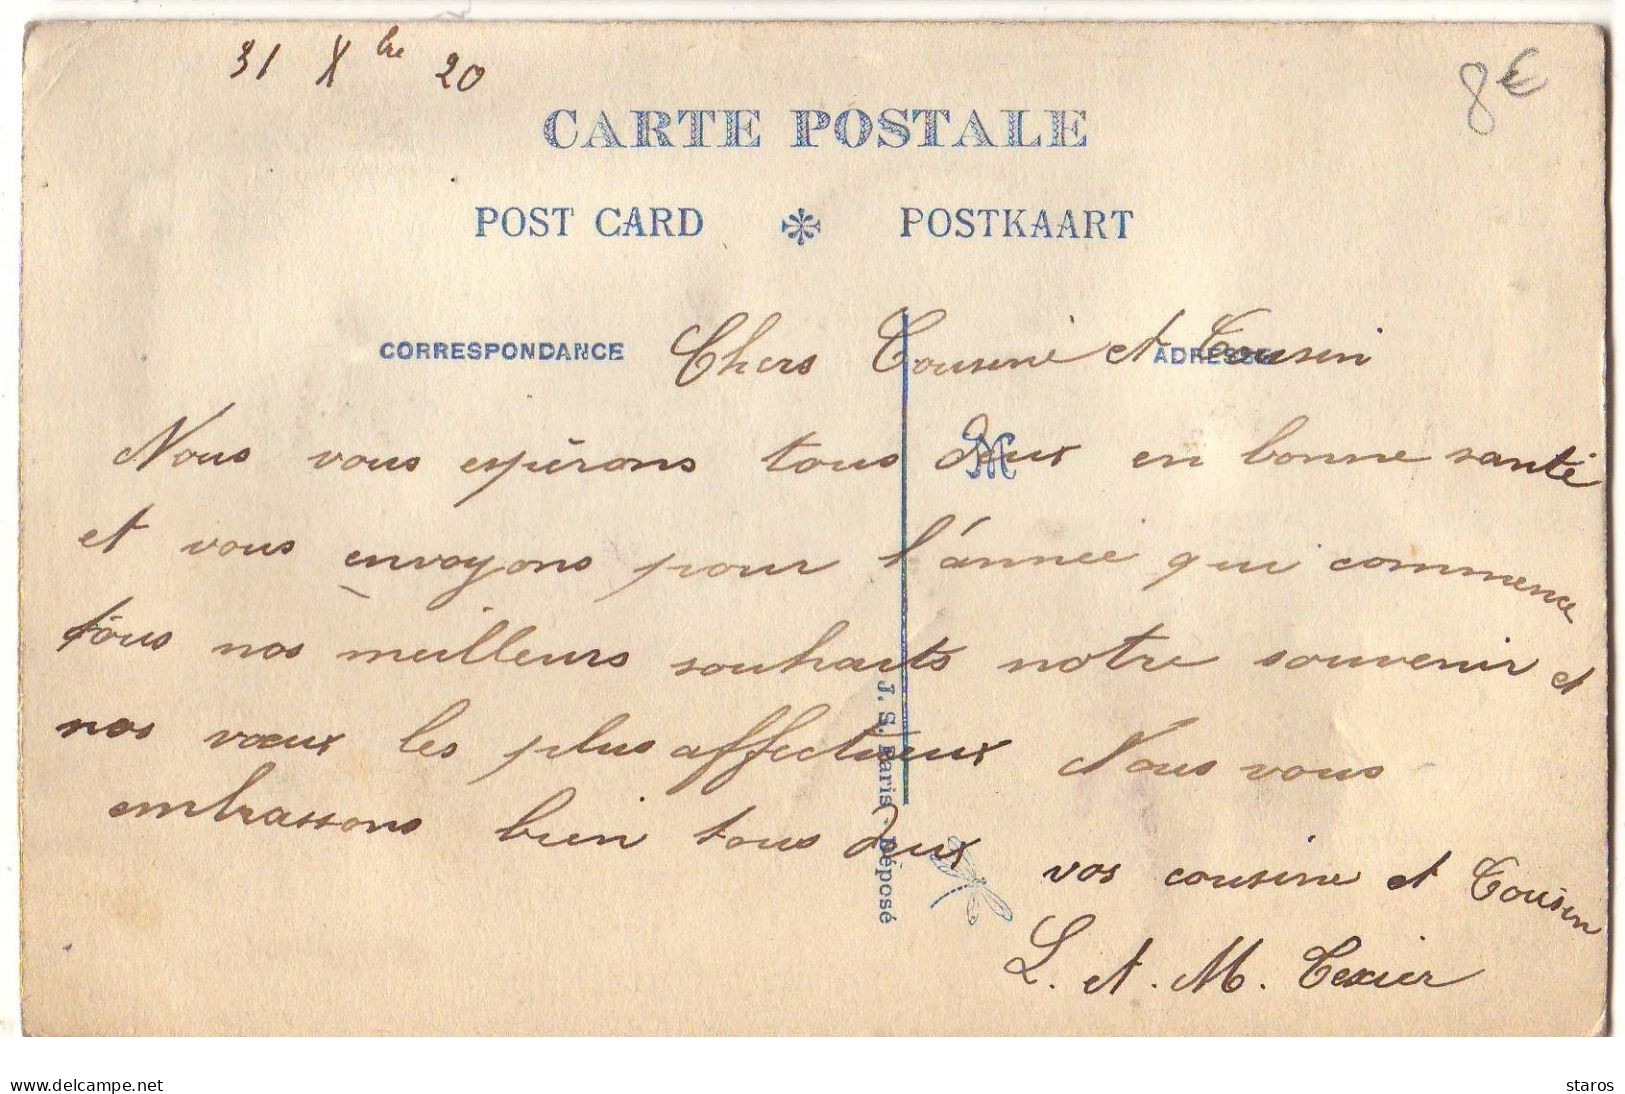 31 Xbre 20
8€
CARTE POSTALE
POST CARD POSTKAART
CORRESPONDANCE
ADRESSE
Chers Cousine et Cousin
M
Nous vous espérons tous deux en bonne santé
et vous envoyons pour l'année qui commence
tous nos meilleurs souhaits notre souvenir et
nos vœux les plus affectueux Nous vous
embrassons bien tous deux
vos cousine et Cousin
L. et M. Texier
J. S. Paris. Déposé
www.delcampe.net
staros